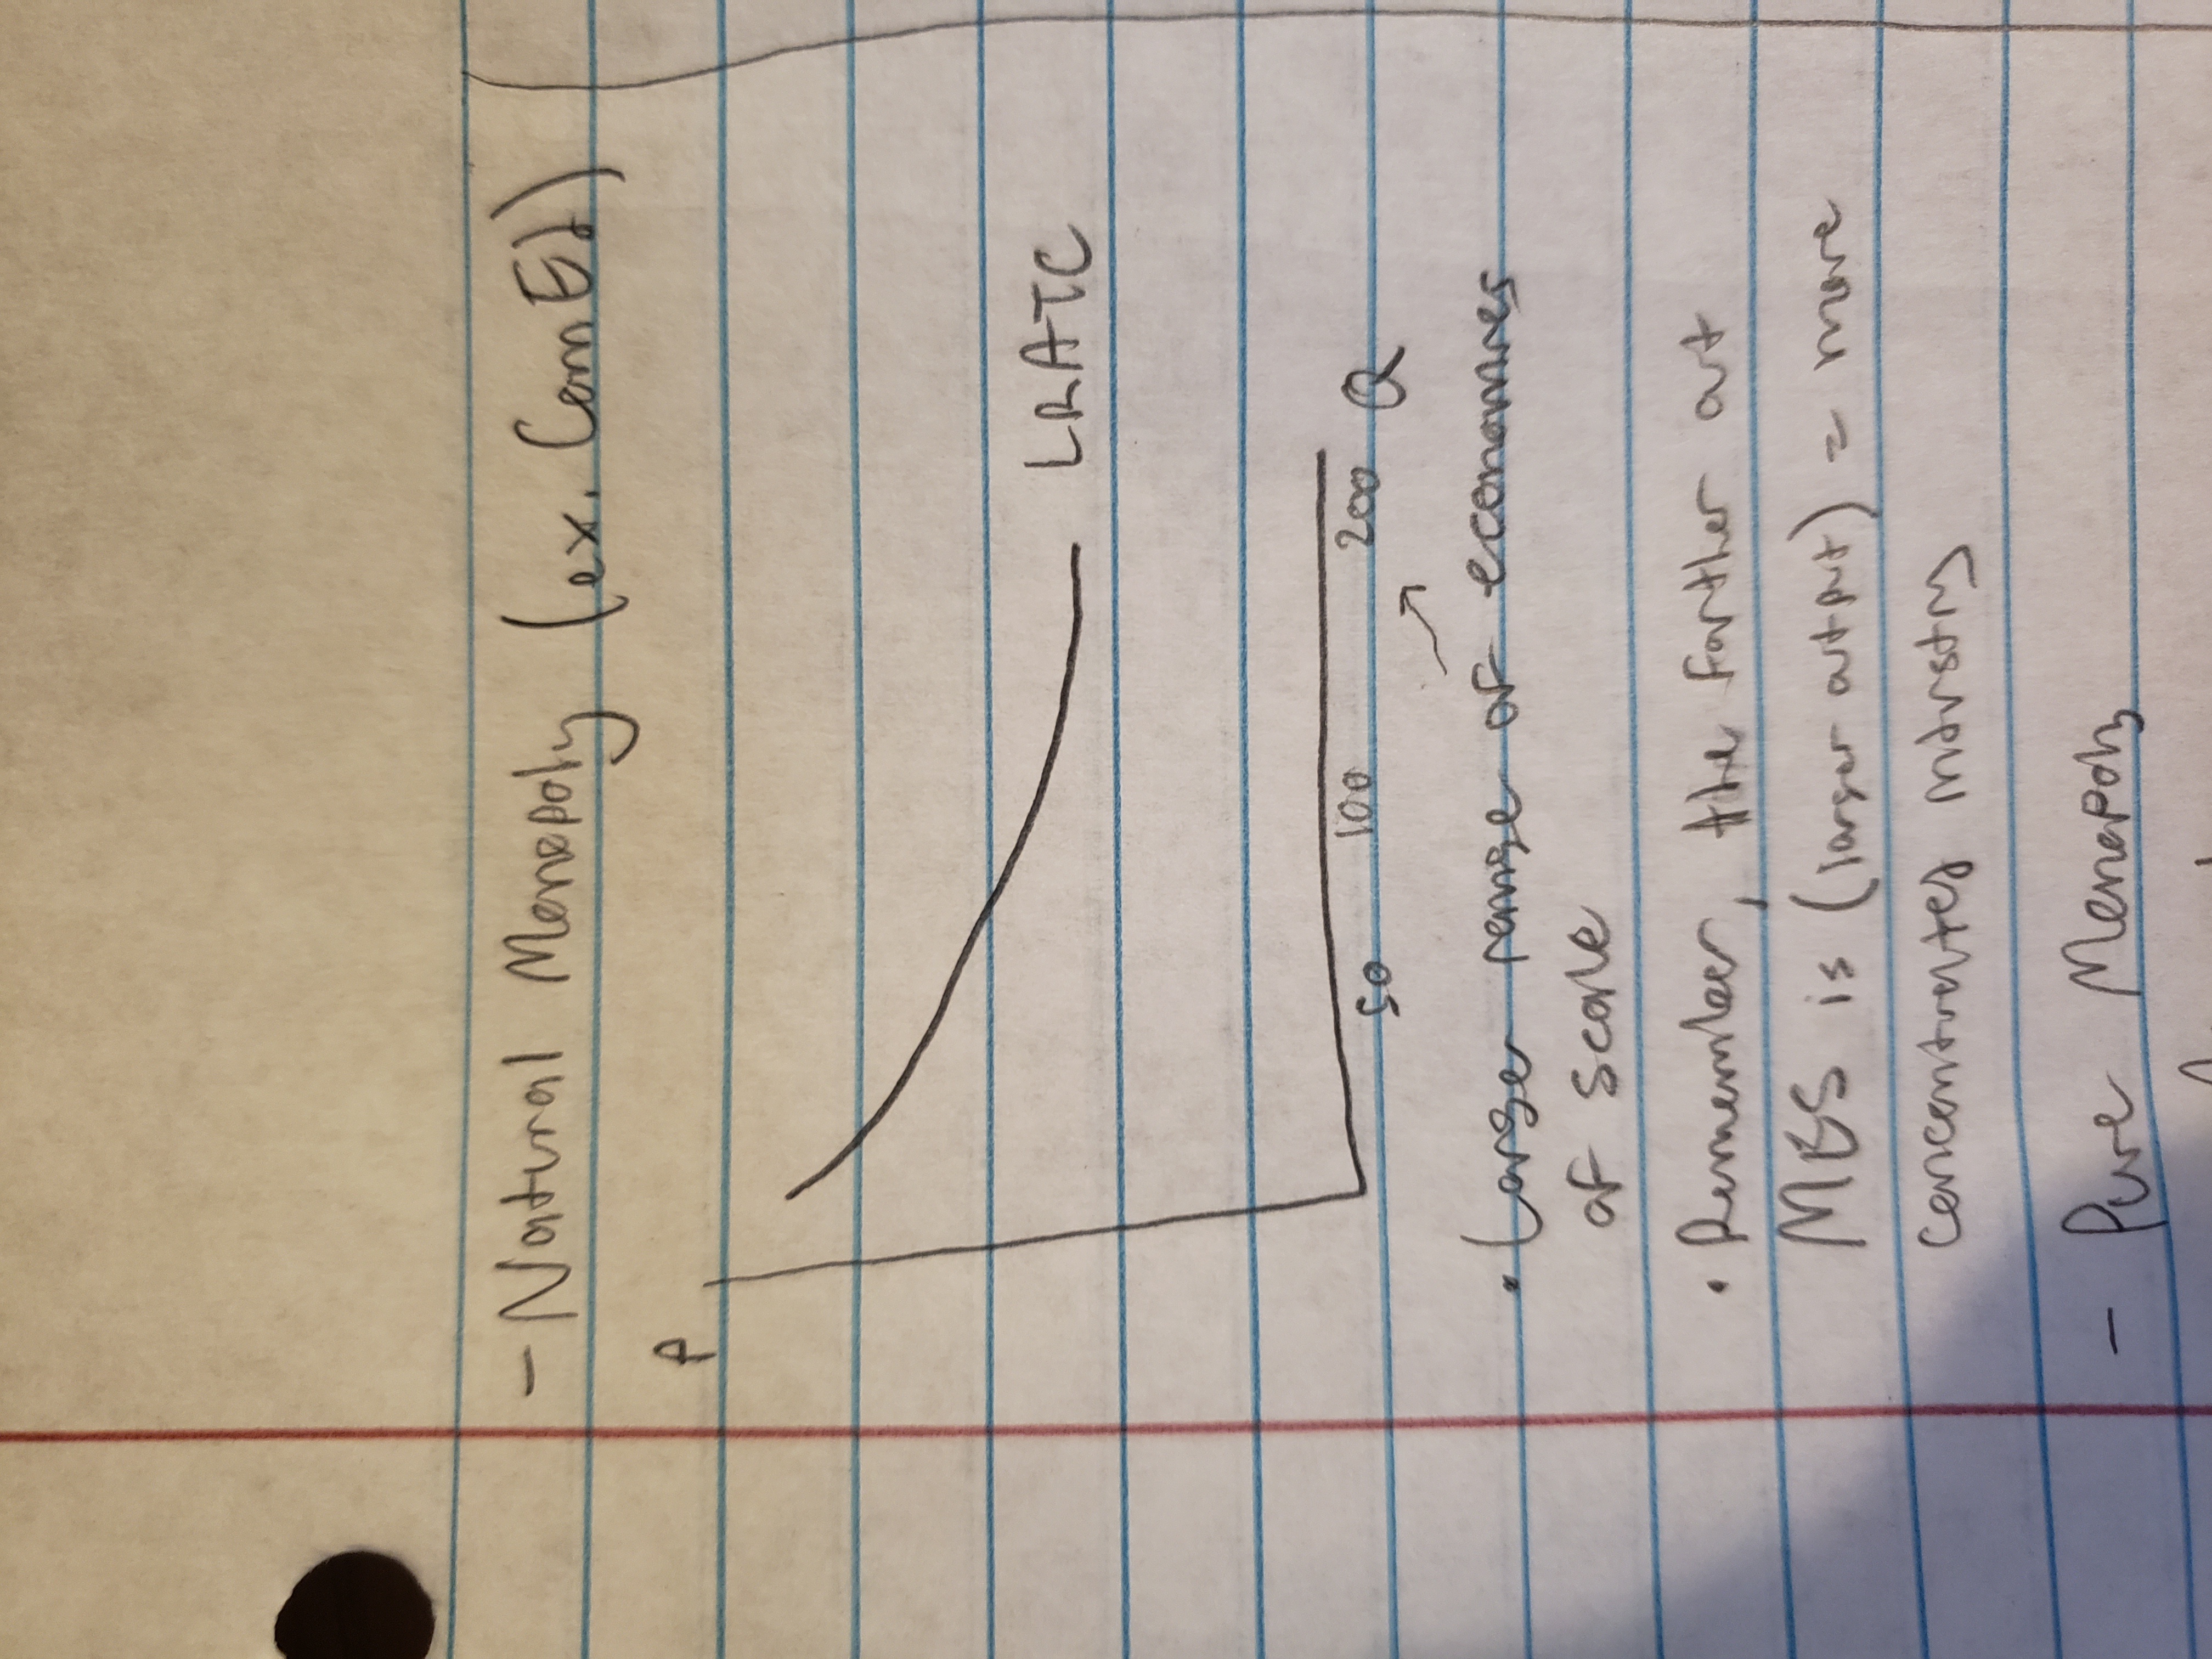 - Natural Monopoly (ex. ComEd)
P
LRATC
50 100 200 Q
• Large range of economies
of scale
• Remember, the farther out
MES is (larger output) = more
concentrated industry
- Pure Monopoly